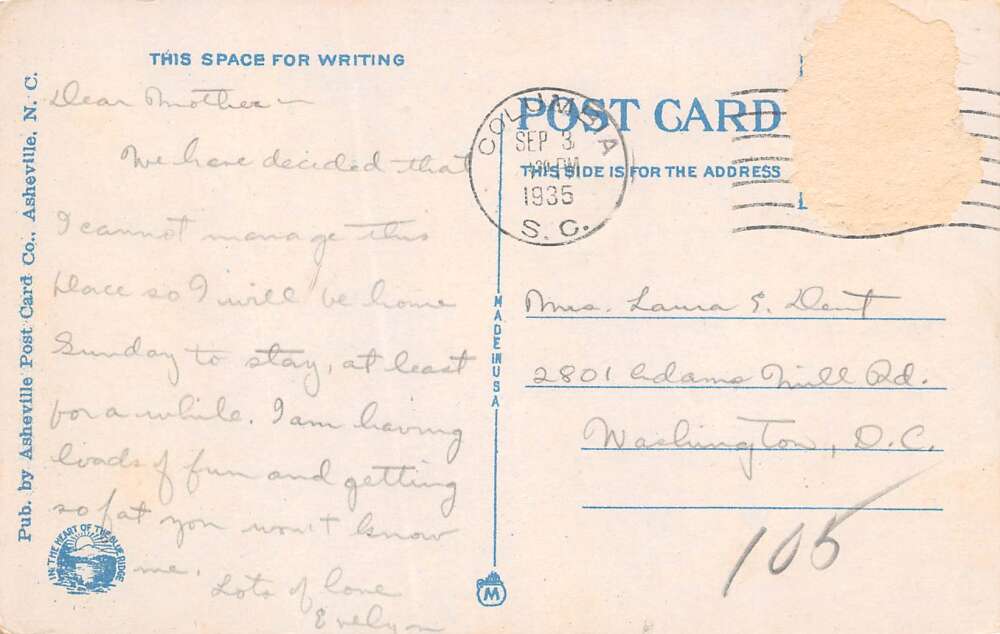 THIS SPACE FOR WRITING
Dear Mother –
We have decided that
I cannot manage this
place so I will be home
Sunday to stay, at least
for a while. I am having
loads of fun and getting
so fat you won't know
me.
Lots of love
Evelyn
Pub. by Asheville Post Card Co., Asheville, N. C.
IN THE HEART OF THE BLUE RIDGE
MADE IN USA
M
POST CARD
THIS SIDE IS FOR THE ADDRESS
COLUMBIA
SEP 3
PM
1935
S. C.
Mrs. Laura E. Dent
2801 Adams Mill Rd.
Washington, D.C.
105